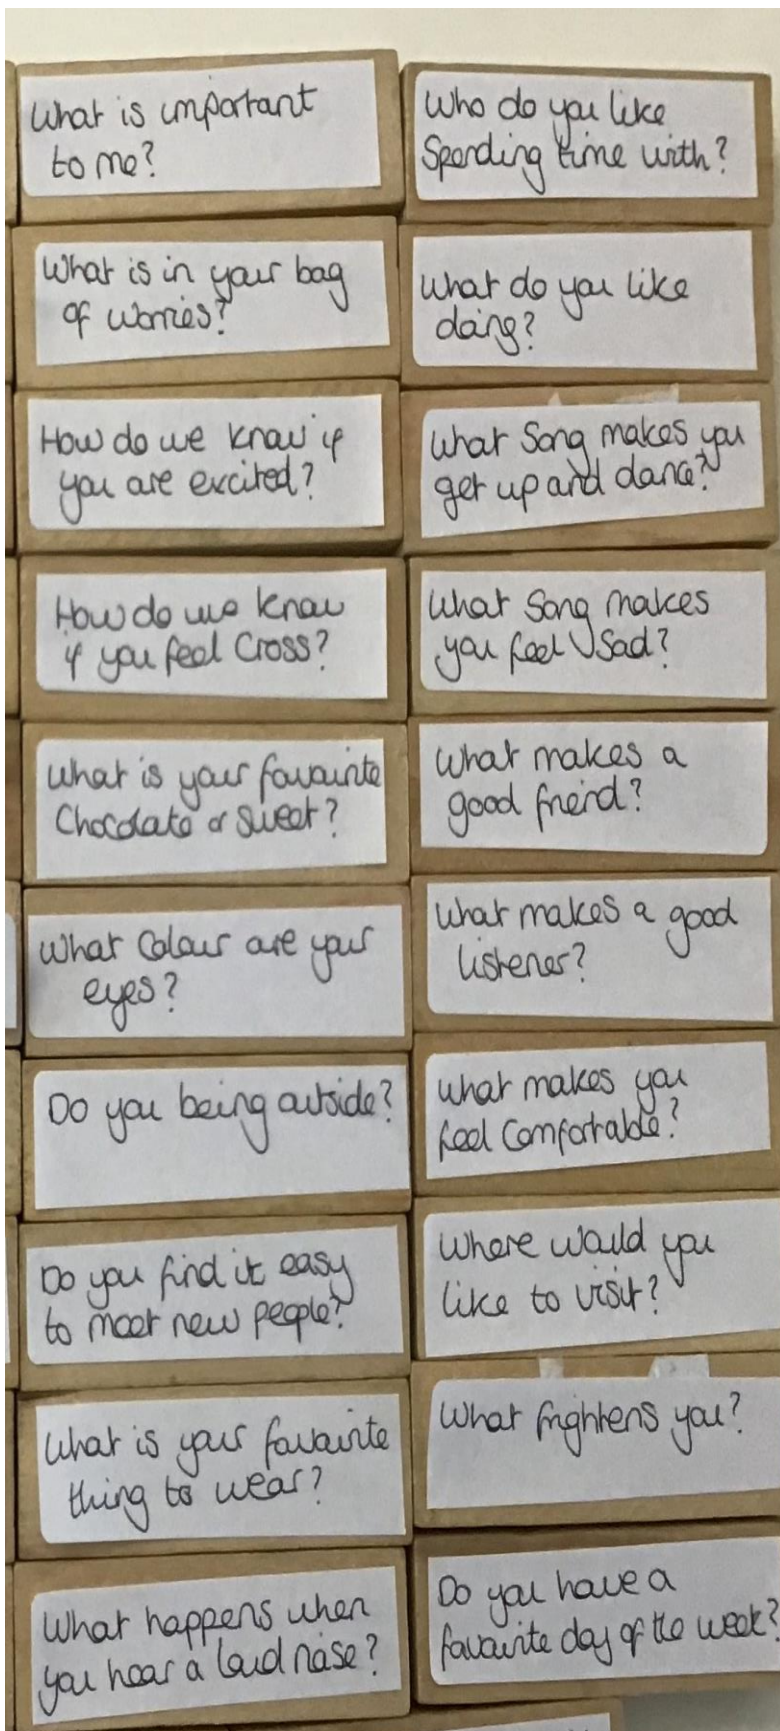 What is important
to me?
What is in your bag
of worries?
How do we know if
you are excited?
How do we know
if you feel Cross?
What is your favourite
Chocolate or sweet?
What Colour are your
eyes?
Do you being outside?
Do you find it easy
to meet new people?
What is your favourite
thing to wear?
What happens when
you hear a loud noise?
Who do you like
Spending time with?
What do you like
doing?
What Song makes you
get up and dance?
What Song makes
you feel Sad?
What makes a
good freind?
What makes a good
listener?
What makes you
feel Comfortable?
Where would you
like to visit?
What frightens you?
Do you have a
favourite day of the week?